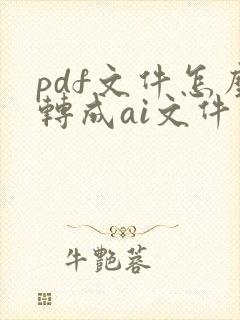 pdf文件怎
轉成ai文件
牛艷蓉